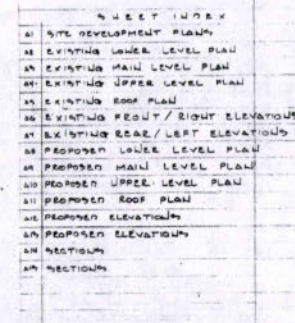 SHEET INDEX
A1 SITE DEVELOPMENT PLANS
A2 EXISTING LOWER LEVEL PLAN
A3 EXISTING MAIN LEVEL PLAN
A4 EXISTING UPPER LEVEL PLAN
A5 EXISTING ROOF PLAN
A6 EXISTING FRONT / RIGHT ELEVATIONS
A7 EXISTING REAR / LEFT ELEVATIONS
A8 PROPOSED LOWER LEVEL PLAN
A9 PROPOSED MAIN LEVEL PLAN
A10 PROPOSED UPPER LEVEL PLAN
A11 PROPOSED ROOF PLAN
A12 PROPOSED ELEVATIONS
A13 PROPOSED ELEVATIONS
A14 SECTIONS
A15 SECTIONS